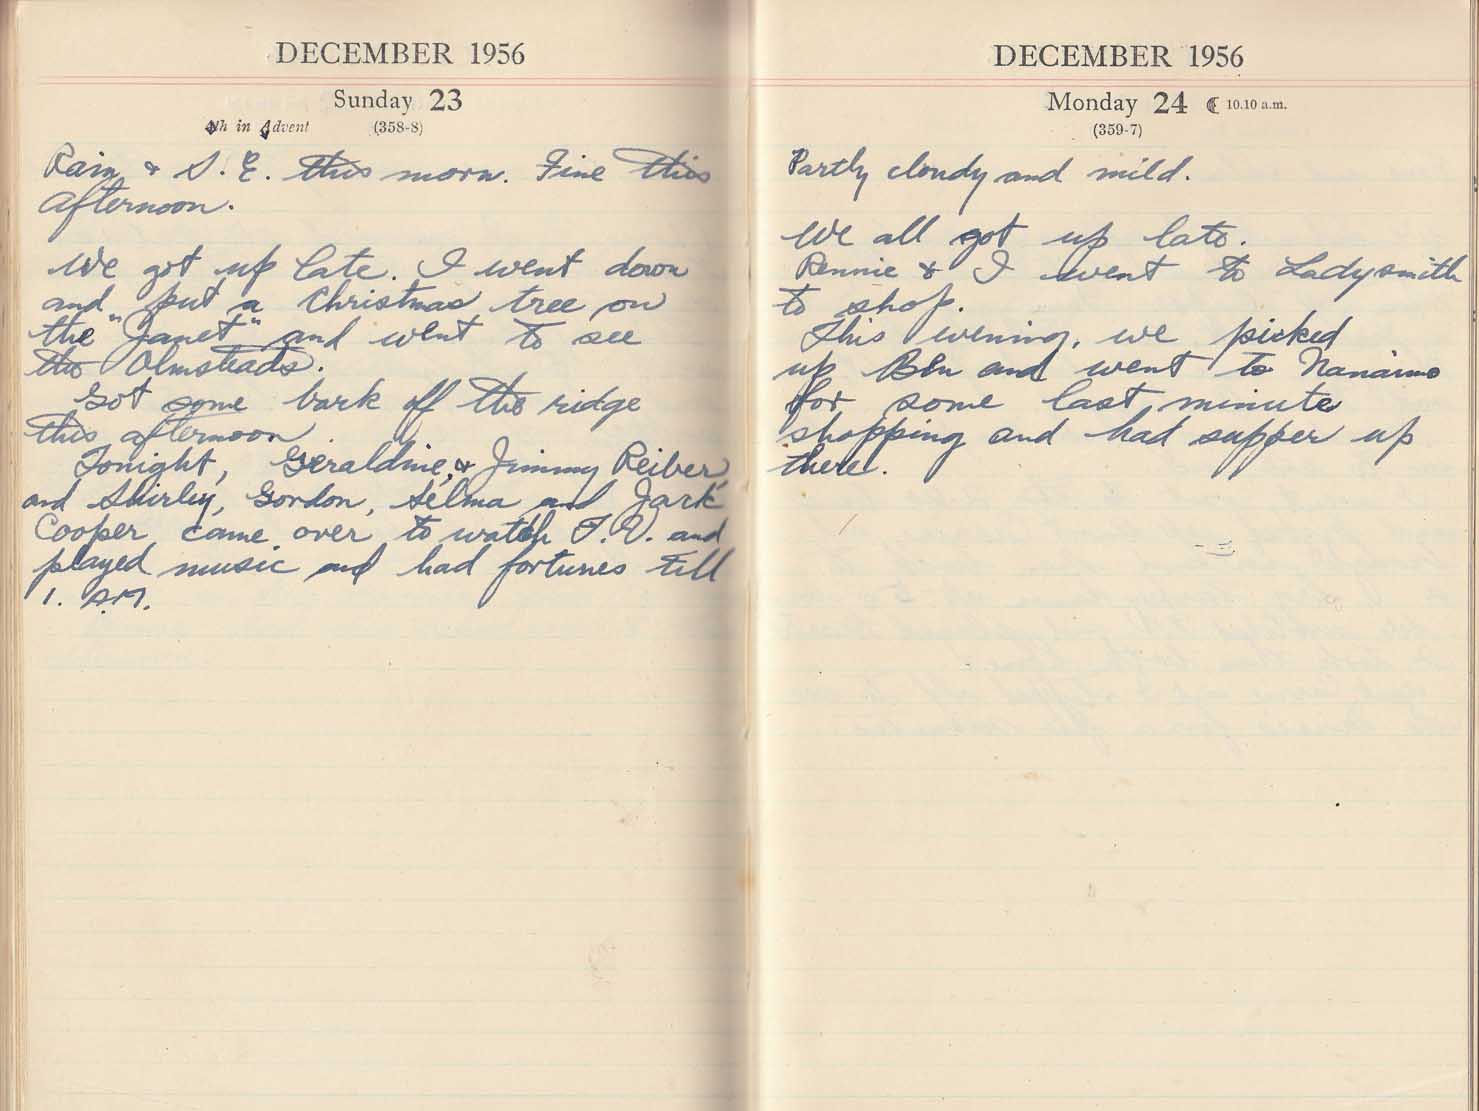 DECEMBER 1956
Sunday 23
4th in Advent (358-8)
Rain & S. E. this morn. Fine this
afternoon.
We got up late. I went down
and put a Christmas tree on
the "Janet" and went to see
the Olmsteads.
Got some bark off the ridge
this afternoon.
Tonight, Geraldine, & Jimmy Reiber,
and Shirley, Gordon, Selma and Jack
Cooper came over to watch T.V. and
played music and had fortunes till
1. A.M.
DECEMBER 1956
Monday 24 ☾ 10.10 a.m.
(359-7)
Partly cloudy and mild.
We all got up late.
Rennie & I went to Ladysmith
to shop.
This evening, we picked
up Ben and went to Nanaimo
for some last minute
shopping and had supper up
there.